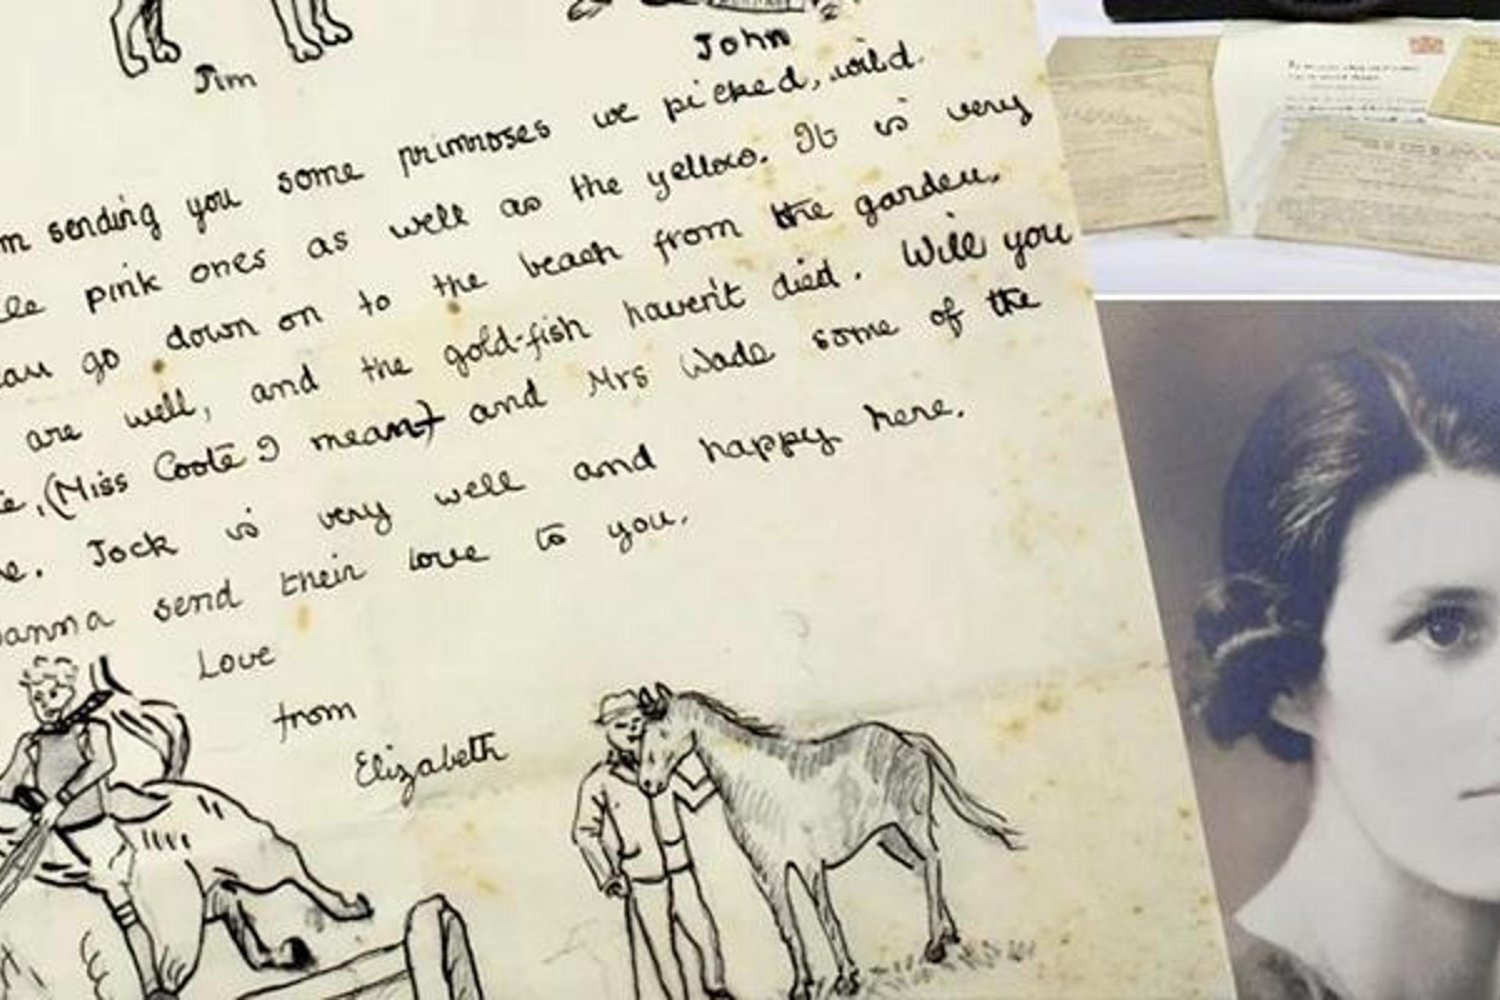 Jim
John
m sending you some primroses we picked, wild.
le pink ones as well as the yellow. It is very
can go down on to the beach from the garden.
are well, and the gold-fish haven't died. Will you
e, (Miss Coote I mean) and Mrs Wade some of the
e. Jock is very well and happy here.
anna send their love to you.
Love
from
Elizabeth